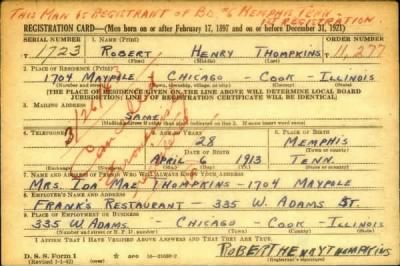 THIS MAN IS REGISTRANT OF BD. #6 MEMPHIS TENN
1ST REGISTRATION
REGISTRATION CARD—(Men born on or after February 17, 1897 and on or before December 31, 1921)
SERIAL NUMBER 1. NAME (Print) ORDER NUMBER
T 1723 ROBERT HENRY THOMPKINS T 11,277
(First) (Middle) (Last)
2. PLACE OF RESIDENCE (Print)
1704 MAYPOLE CHICAGO - COOK - ILLINOIS
(Number and street) (Town, township, village, or city) (County) (State)
[THE PLACE OF RESIDENCE GIVEN ON THE LINE ABOVE WILL DETERMINE LOCAL BOARD
JURISDICTION; LINE 2 OF REGISTRATION CERTIFICATE WILL BE IDENTICAL]
3. MAILING ADDRESS
SAME
[Mailing address if other than place indicated on line 2. If same insert word same]
4. TELEPHONE 5. AGE IN YEARS 6. PLACE OF BIRTH
28 MEMPHIS
DATE OF BIRTH
APRIL 6 1913 TENN.
7. NAME AND ADDRESS OF PERSON WHO WILL ALWAYS KNOW YOUR ADDRESS
MRS. IDA MAE THOMPKINS - 1704 MAYPOLE
8. EMPLOYER'S NAME AND ADDRESS
FRANK'S RESTAURANT - 335 W. ADAMS ST.
9. PLACE OF EMPLOYMENT OR BUSINESS
335 W. ADAMS - CHICAGO - COOK - ILLINOIS
(Number and street or R. F. D. number) (Town) (County) (State)
I AFFIRM THAT I HAVE VERIFIED ABOVE ANSWERS AND THAT THEY ARE TRUE.
D. S. S. Form 1
(Revised 1-1-42) GPO 16—21630-2
ROBERT HENRY THOMPKINS
(Registrant's signature)